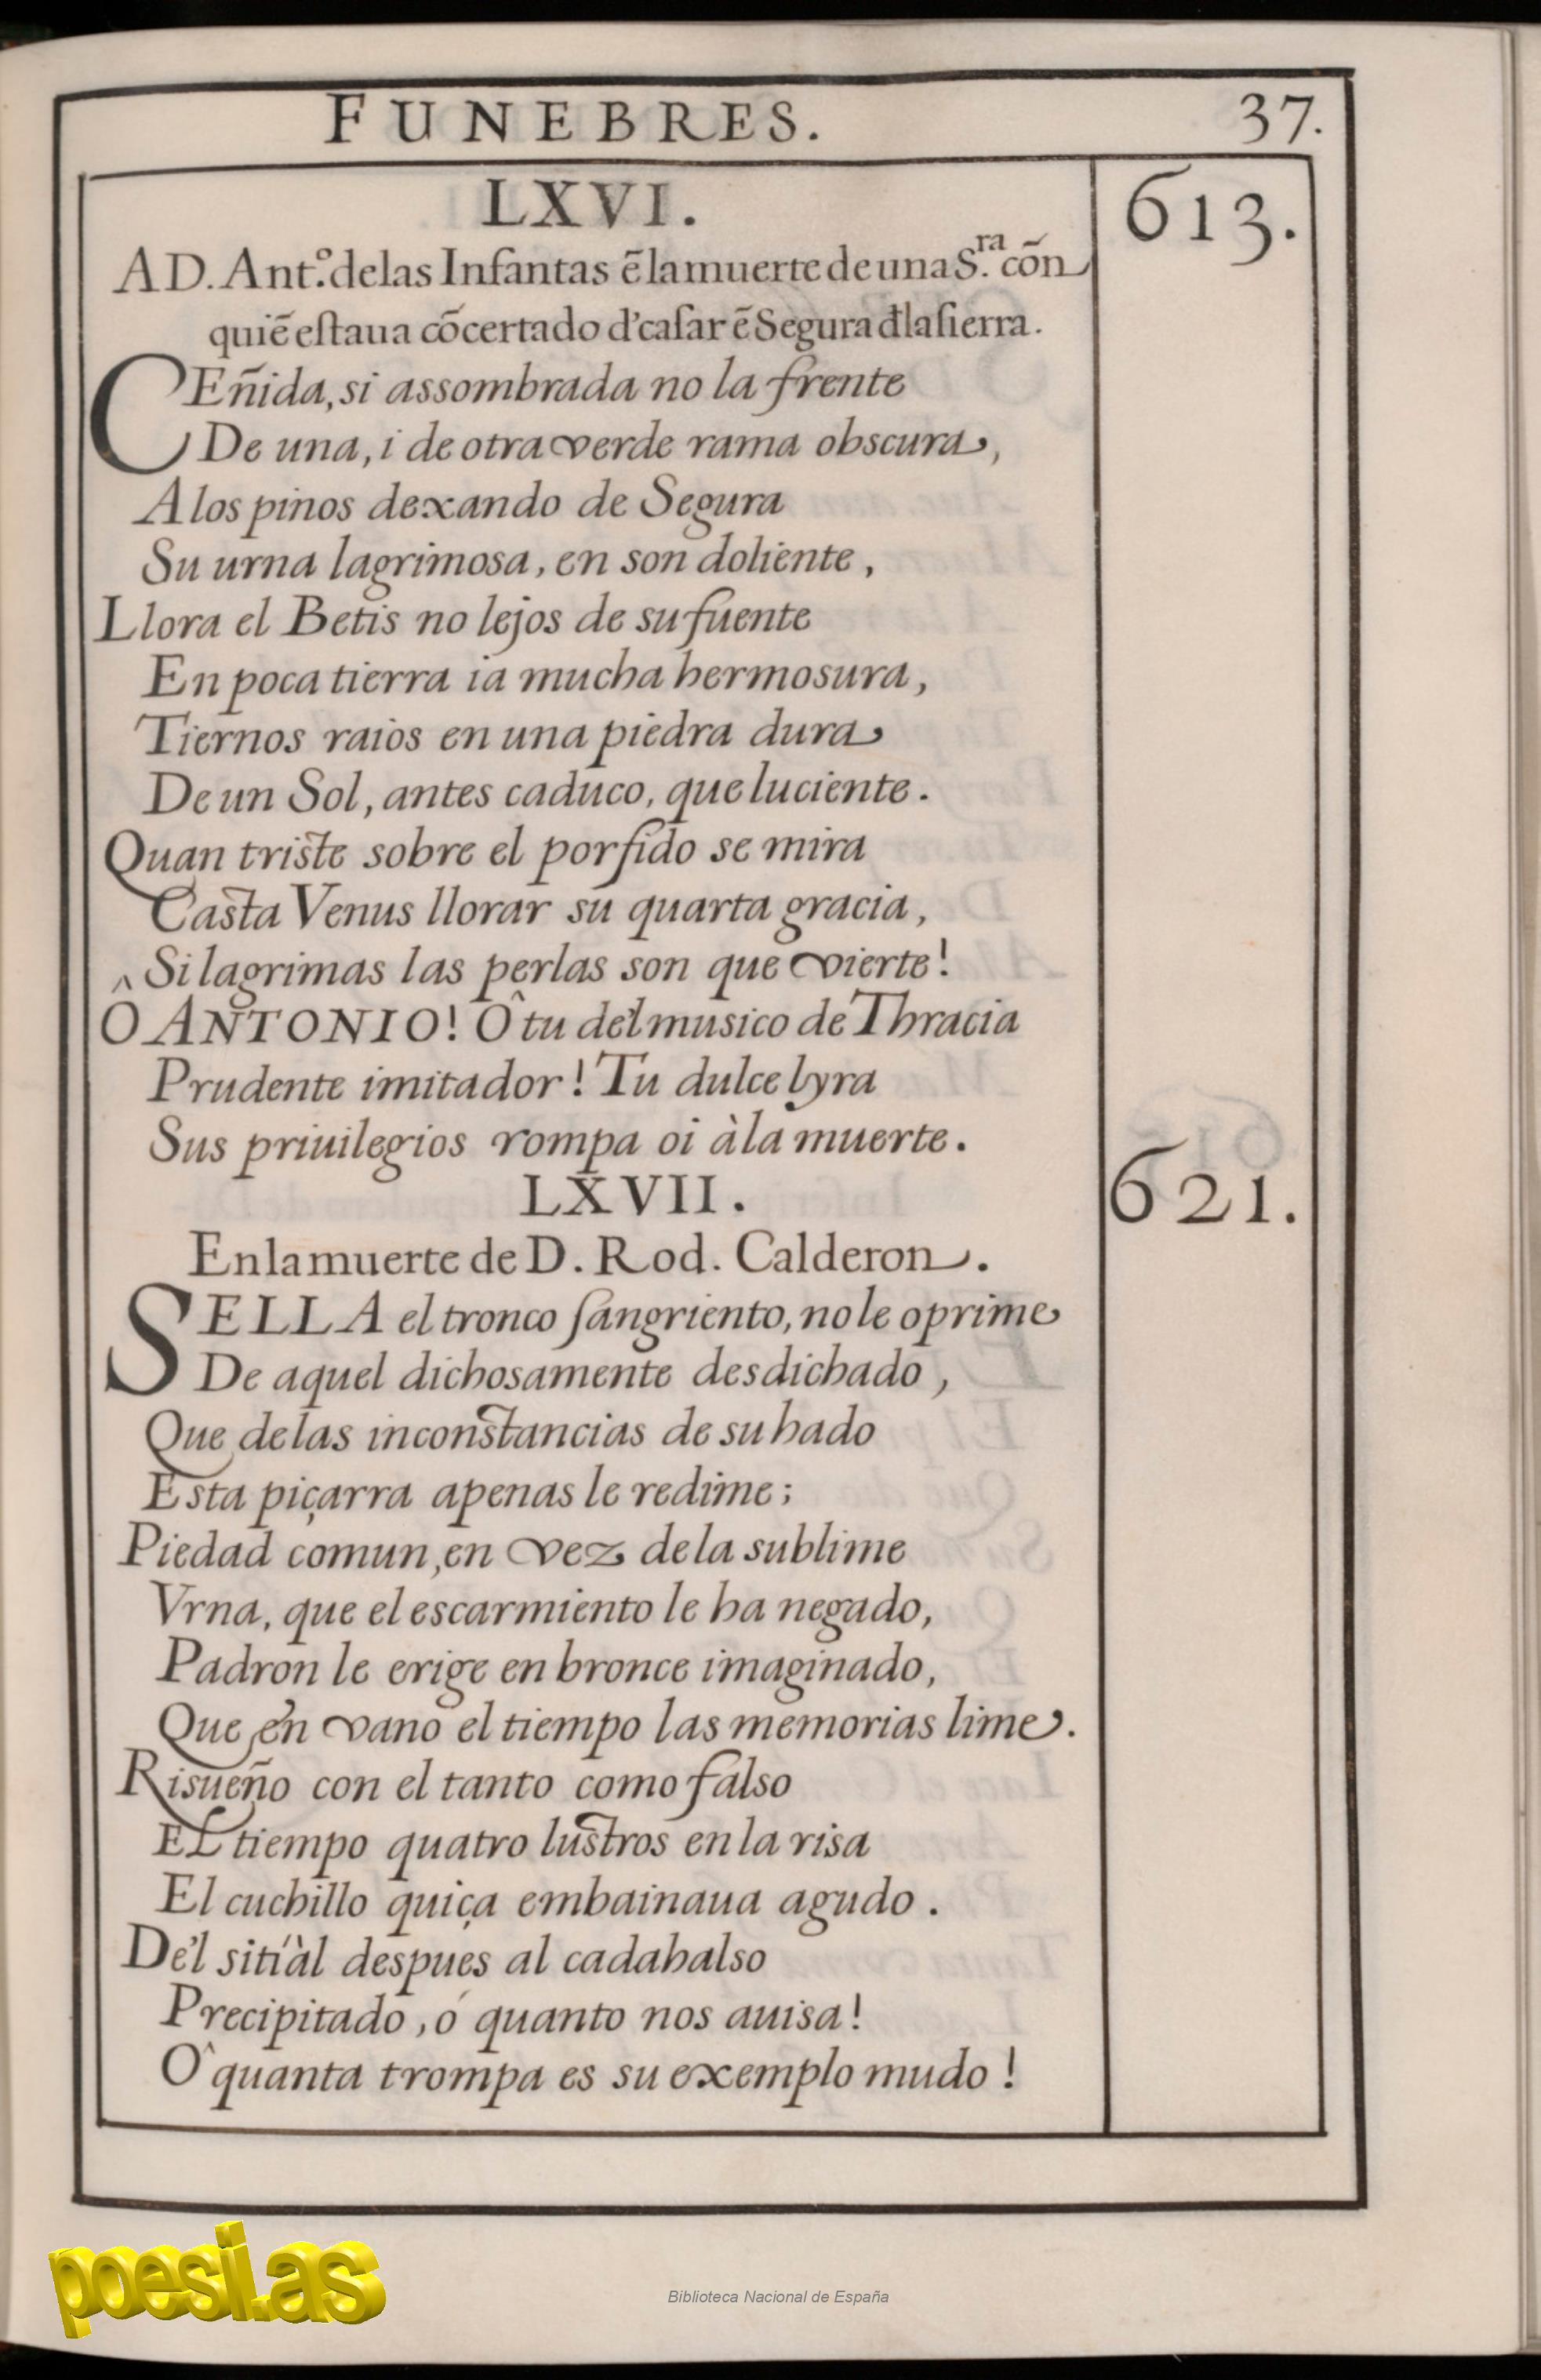 FUNEBRES.
37.
LXVI.
613.
A D. Ant.º de las Infantas ẽ la muerte de una S.ra cõn
quiẽ eſtaua cõcertado d'caſar ẽ Segura đ la ſierra.
CEñida, si assombrada no la frente
De una, i de otra verde rama obscura,
A los pinos dexando de Segura
Su urna lagrimosa, en son doliente,
Llora el Betis no lejos de su fuente
En poca tierra ia mucha hermosura,
Tiernos raios en una piedra dura
De un Sol, antes caduco, que luciente.
Quan triste sobre el porfido se mira
Casta Venus llorar su quarta gracia,
Si lagrimas las perlas son que vierte!
Ô ANTONIO! Ô tu del musico de Thracia
Prudente imitador! Tu dulce lyra
Sus priuilegios rompa oi à la muerte.
LXVII.
621.
En la muerte de D. Rod. Calderon.
SELLA el tronco ſangriento, no le oprime
De aquel dichosamente desdichado,
Que de las inconstancias de su hado
Esta piçarra apenas le redime;
Piedad comun, en vez de la sublime
Vrna, que el escarmiento le ha negado,
Padron le erige en bronce imaginado,
Que en vano el tiempo las memorias lime.
Risueño con el tanto como falso
EL tiempo quatro lustros en la risa
El cuchillo quiça embainaua agudo.
De'l sitíàl despues al cadahalso
Precipitado, ó quanto nos auisa!
Ô quanta trompa es su exemplo mudo!
poesi.as
Biblioteca Nacional de España